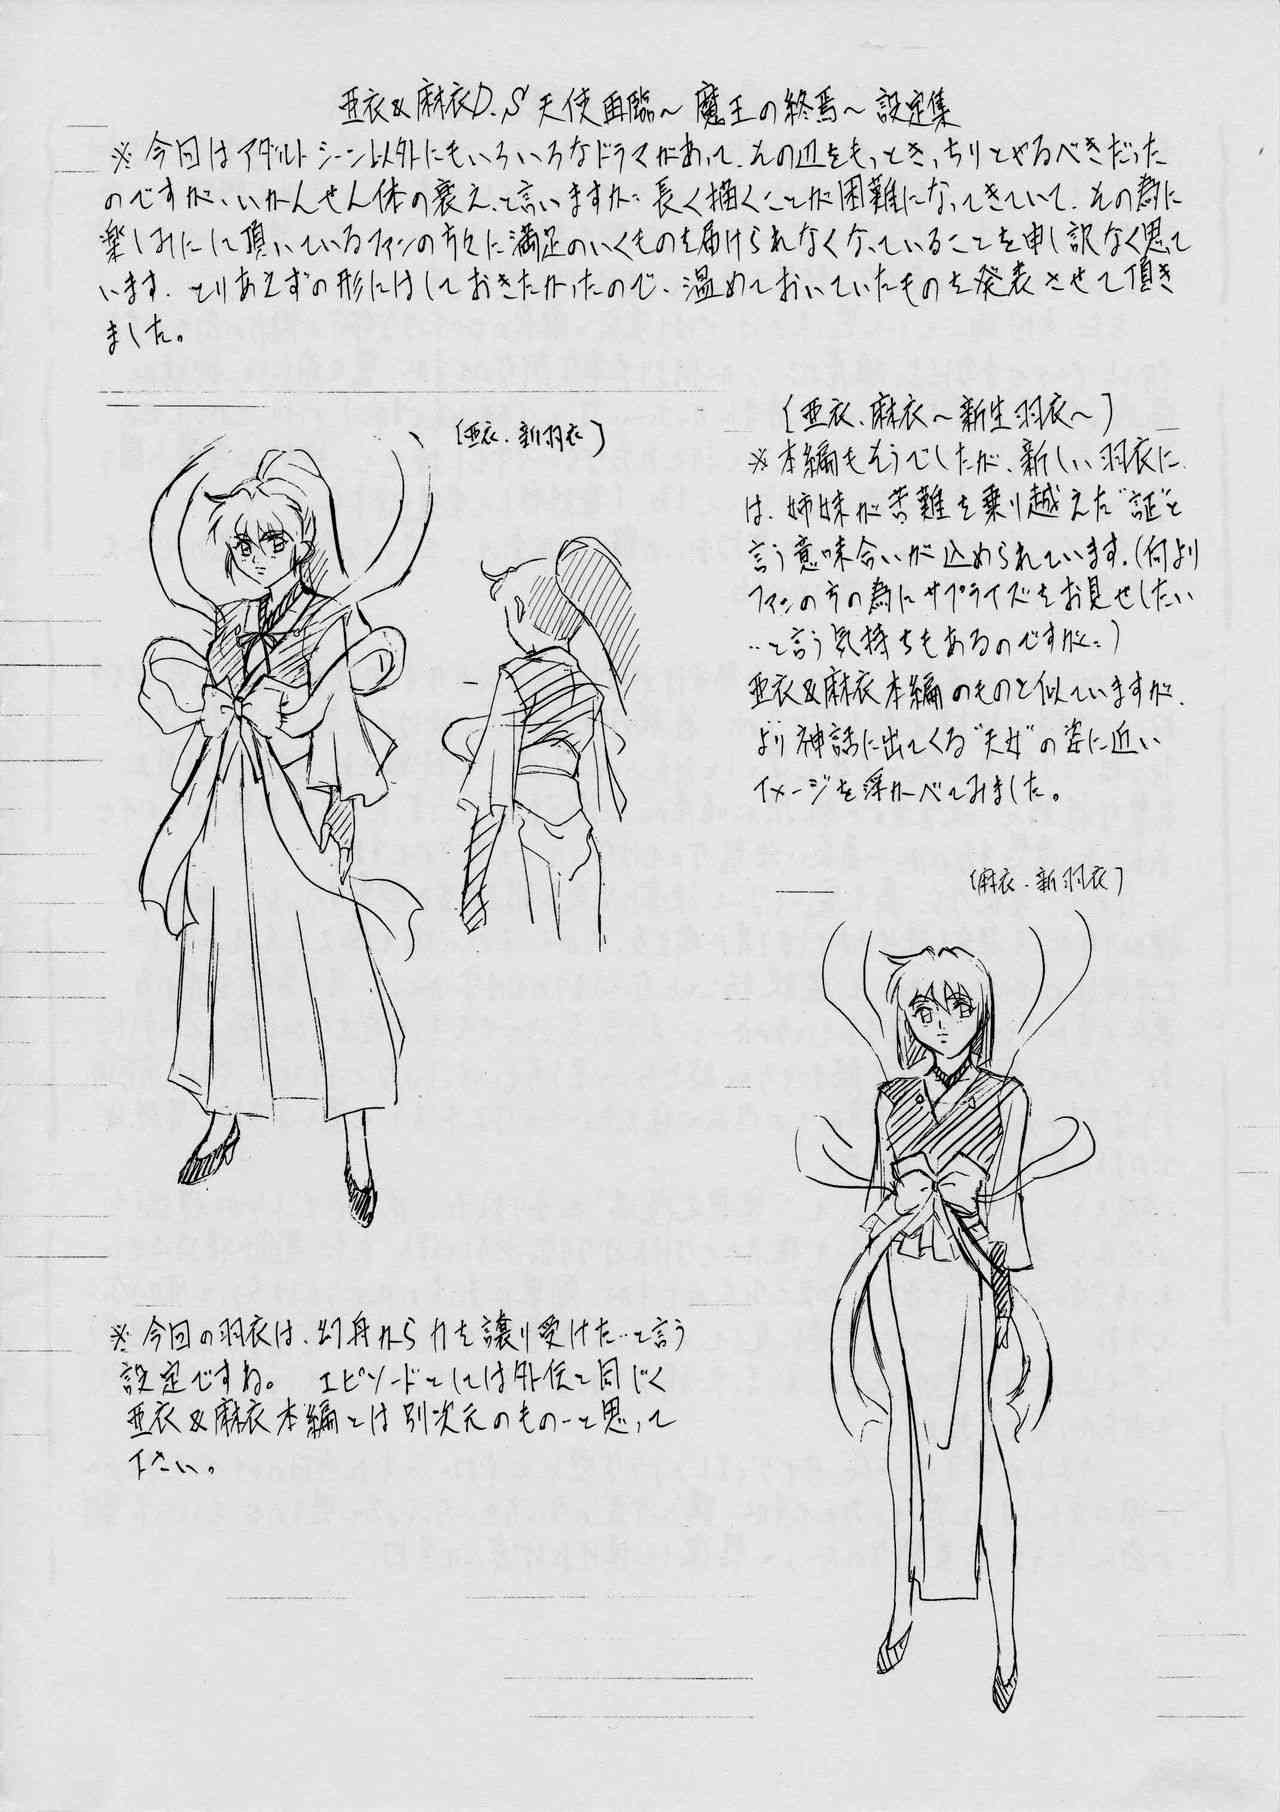 亜衣&麻衣D.S 天使再臨～魔王の終焉～設定集
※今回はアダルトシーン以外にもいろいろなドラマがあって、その辺をもっときっちりとやるべきだった
のですが、いかんせん体の衰え、と言いますか…長く描くことが困難になってきていて、その為に
楽しみにして頂いているファンの方々に満足のいくものを届けられなくなっていることを申し訳なく思って
います。とりあえずの形にはしておきたかったので、温めておいていたものを発表させて頂き
ました。
(亜衣・新羽衣)
[亜衣、麻衣～新生羽衣～]
※本編もそうでしたが、新しい羽衣に
は、姉妹が苦難を乗り越えた“証”と
言う意味合いが込められています。(何より
ファンの方の為にサプライズをお見せしたい
…と言う気持ちもあるのですが…)
亜衣&麻衣本編のものと似ていますが、
より神話に出てくる“天女”の姿に近い
イメージを浮かべてみました。
(麻衣・新羽衣)
※今回の羽衣は、幻舟から力を譲り受けた…と言う
設定ですね。 エピソードとしては外伝と同じく
亜衣&麻衣本編とは別次元のもの…と思って
下さい。